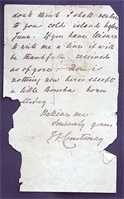 don't think I shall return
to your cold islands before
June. If you have leisure
to write me a line it will
be thankfully received
as of yore. There is
nothing new here except
a little Bourbon born
yesterday.
Believe me
Sincerely yours